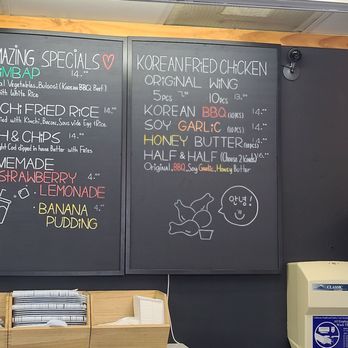 MAZING SPECIALS♡
IMBAP 14.
Vegetables, Bulgogi (Korean BBQ Beef)
with White Rice
CHI FRIED RICE 14.
ied with Kimchi, Bacon, Sous vide Egg &Rice
H & CHIPS 14.
Cod dipped in house Batter with Fries
MEMADE
STRAWBERRY 4.
LEMONADE
· BANANA 4.
PUDDING
KOREAN FRIED CHICKEN
ORIGINAL WING
5pcs 10pcs 13.
KOREAN BBQ (10 PCS) 14.
SOY GARLIC (10 PCS) 14.
HONEY BUTTER (10PCS) 14.
HALF & HALF (Choose 2 kinds) 16.
Original, BBQ, Soy Garlic, Honey Butter
안녕!
CLASSIC